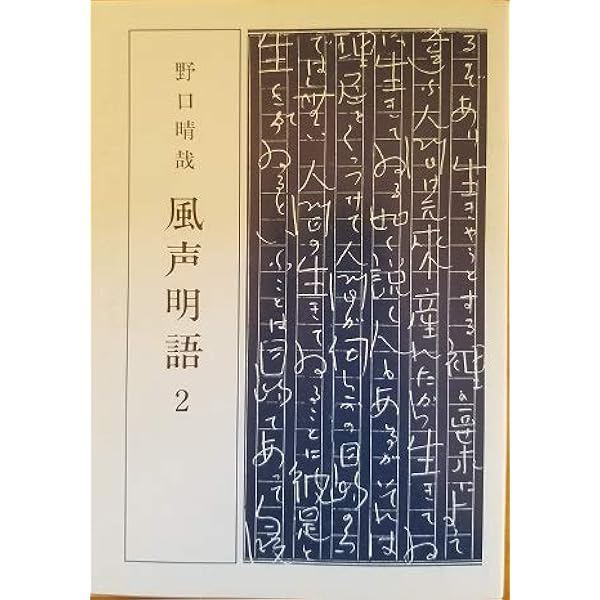 野口晴哉
風声明語
2
生きてゐるといふことは目的であって手段
では無い人間の生きてゐることに彼是と
理屈をくっつけて人間が何らかの目的の
に生きてゐる如く説く人もあるがそれは
違ふ人間は元来産れたから生きてゐ
るのであり生きやうとする神の要求によって